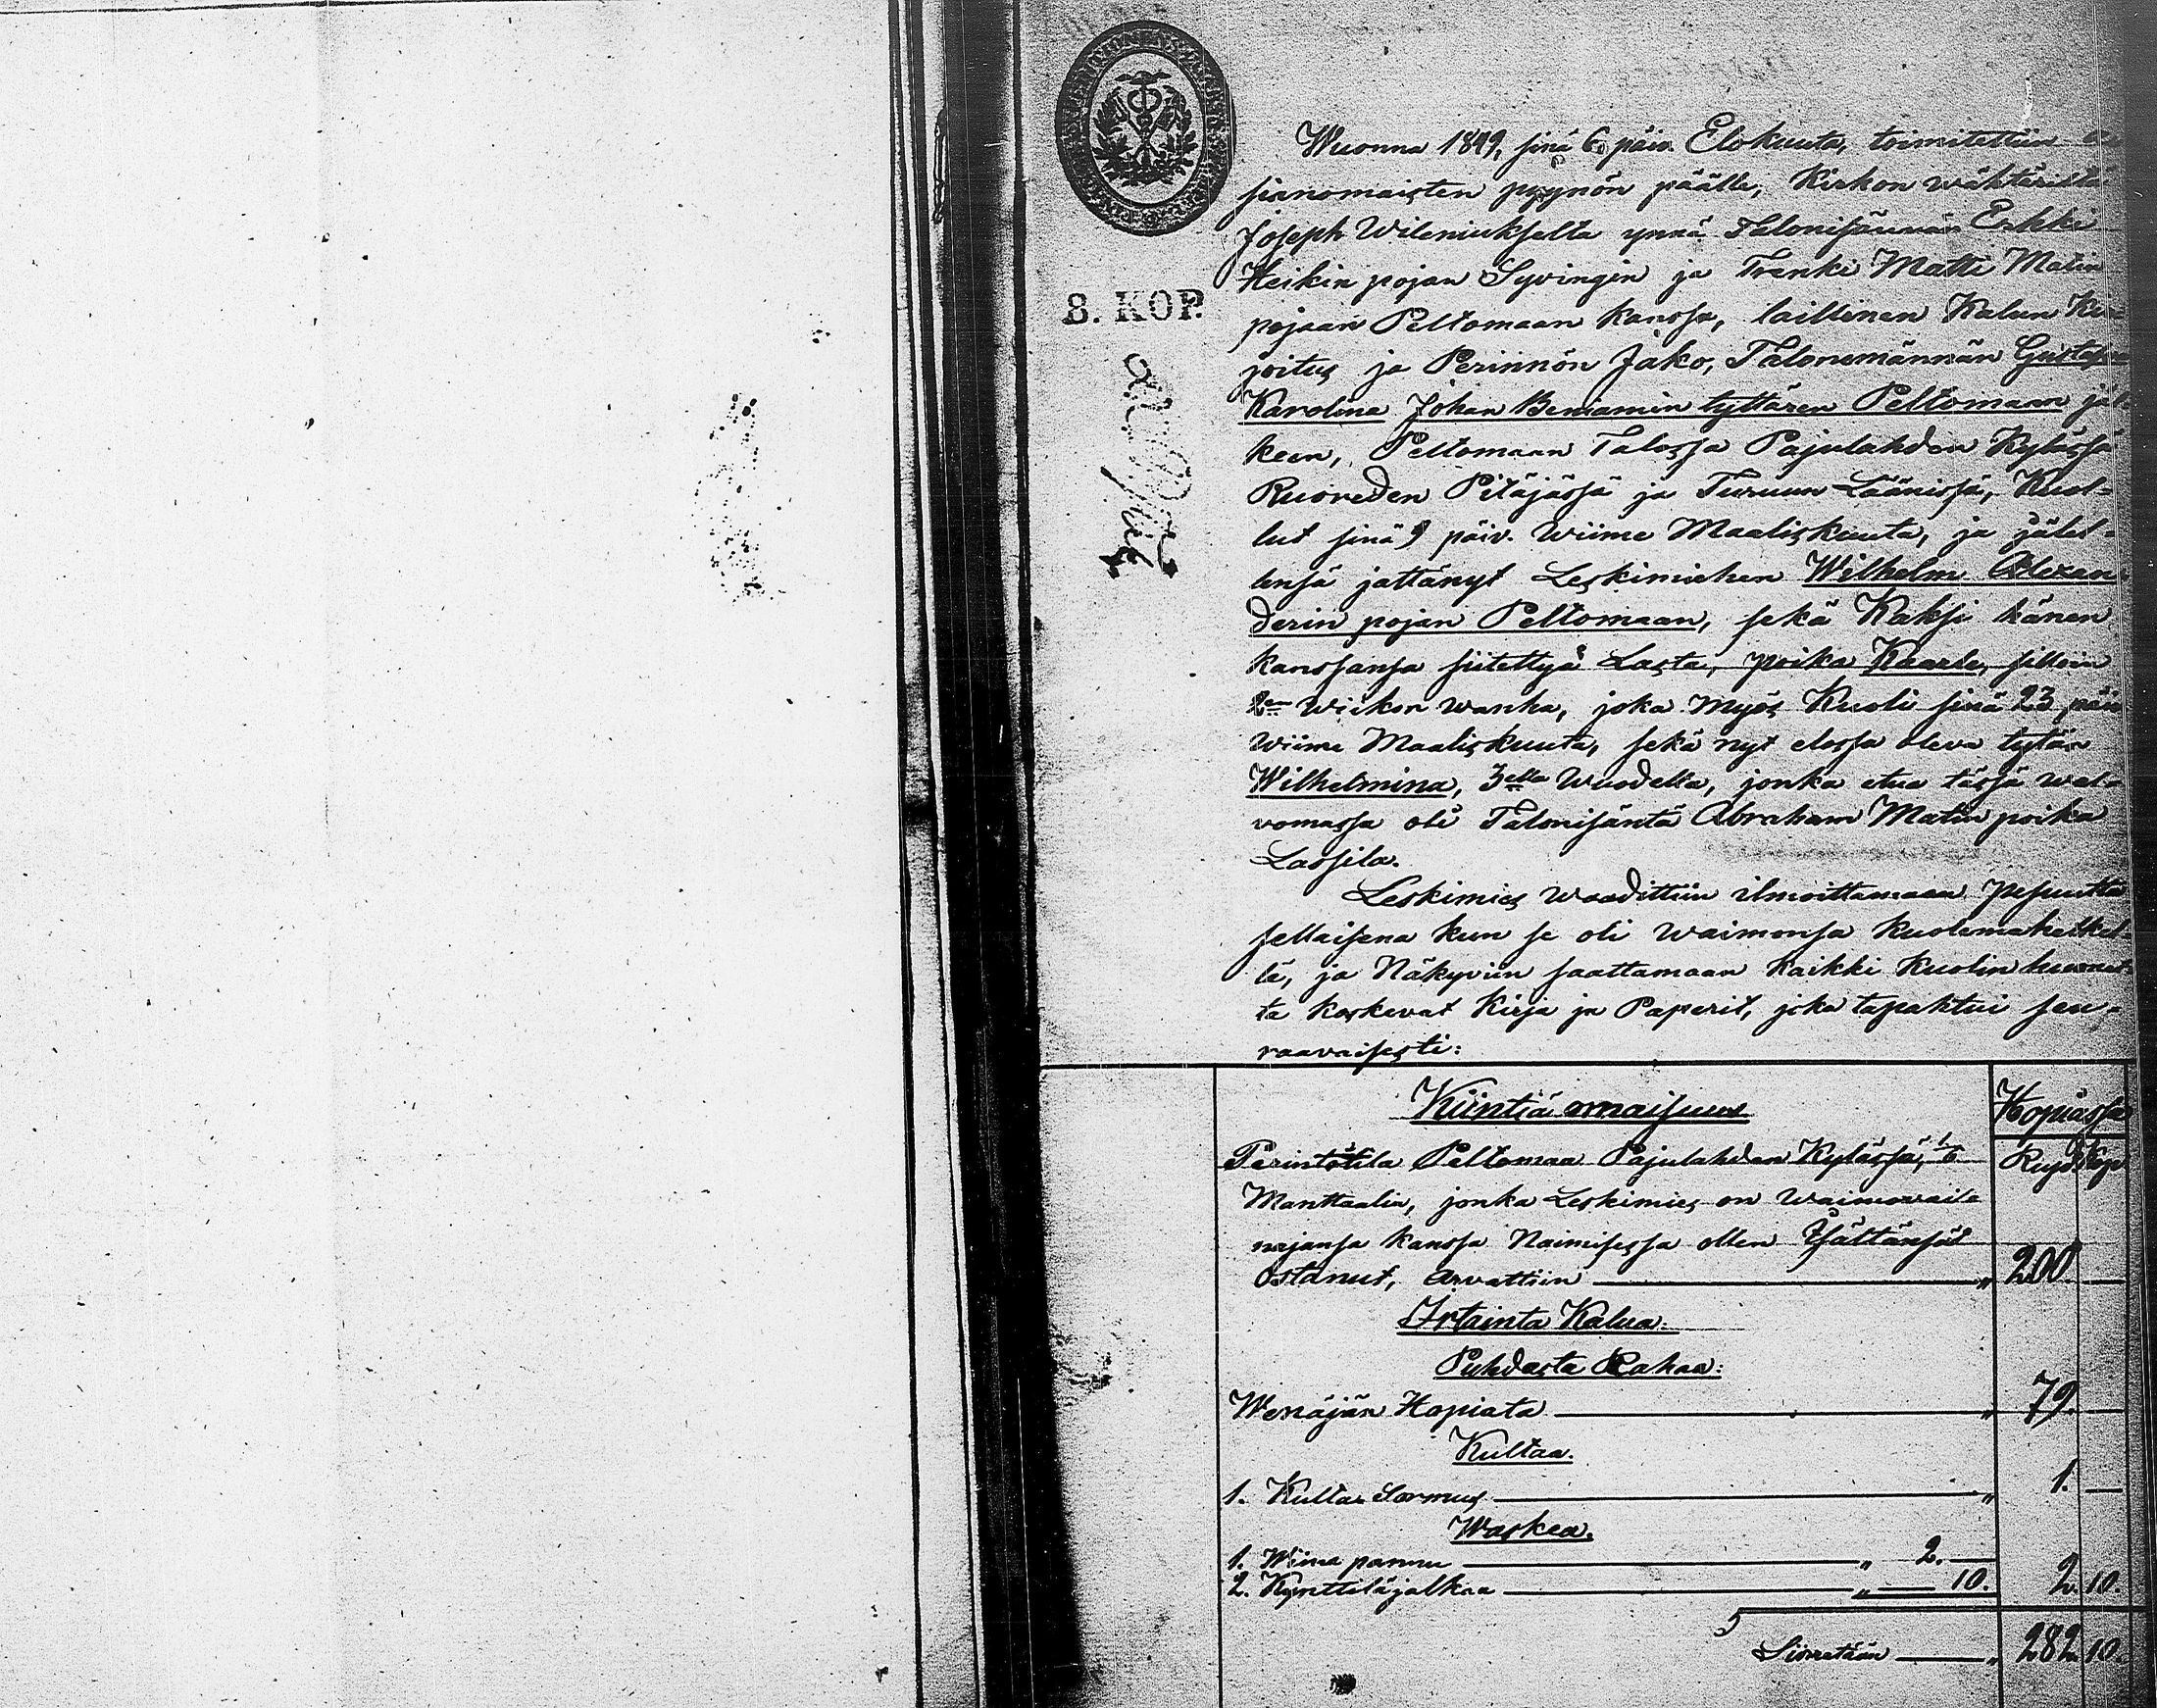 Wuonna 1849, sinä 6. päiv. Elokuuta, toimitettiin
sianomaisten pyynön päälle, Kirkon wähtäriltä
Joseph Wileniukselta ynnä Talonisännän Erkki
Heikin pojan Syvingin ja Trenki Matti Matin
8. KOP.
pojaan Peltomaan kanssa, laillinen Kalun Kir-
joitus ja Perinnön Jako, Talonemännän Gustava
Karolina Johan Beniamin tyttären Peltomaan jäl-
keen, Peltomaan Talossa Pajulahden Kylässä
Ruoveden Pitäjässä ja Turuun Läänissä, Kuol-
lut sinä 9 päiv. Wiime Maaliskuuta, ja jälel-
lensä jättänyt Leskimiehen Wilhelm Alexan-
derin pojan Peltomaan, sekä Kaksi hänen
kanssansa siitettyä Lasta, poika Kaarle, silloin
2en Wiikon wanha, joka Myös Kuoli sinä 23 päiv
Wiime Maaliskuuta, sekä nyt elossa oleva tytär
Wilhelmina, 3ella Wuodella, jonka etua tässä wal-
vomassa oli Talonisäntä Abraham Matin poika
Lassila.
Leskimies waadittiin ilmoittamaan pesuutta
sellaisena kun se oli waimonsa kuolemahetkel-
lä, ja Näkyviin saattamaan kaikki kuolin huonet-
ta koskevat Kirja ja Paperit, joka tapahtui seu-
raavaisesti:
Kiintiä omaisuus
Hopiassa
Perintötila Peltomaa Pajulahden Kylässä, 1/6
Rupl. Kop
Manttaalia, jonka Leskimies on waimowaina
najansa kanssa Naimisessa ollen Isältänsä
Ostanut, arvattiin — " 200 —
Irtainta Kalua.
Puhdasta Rahaa:
Wenäjän Hopiata — " 79. —
Kultaa.
1. Kulta Sormus — " 1. —
Waskea.
1. Wiina pannu — " 2. —
2. Kynttiläjalkaa — " — 10. 2. 10.
Siirretään — " 282 10.